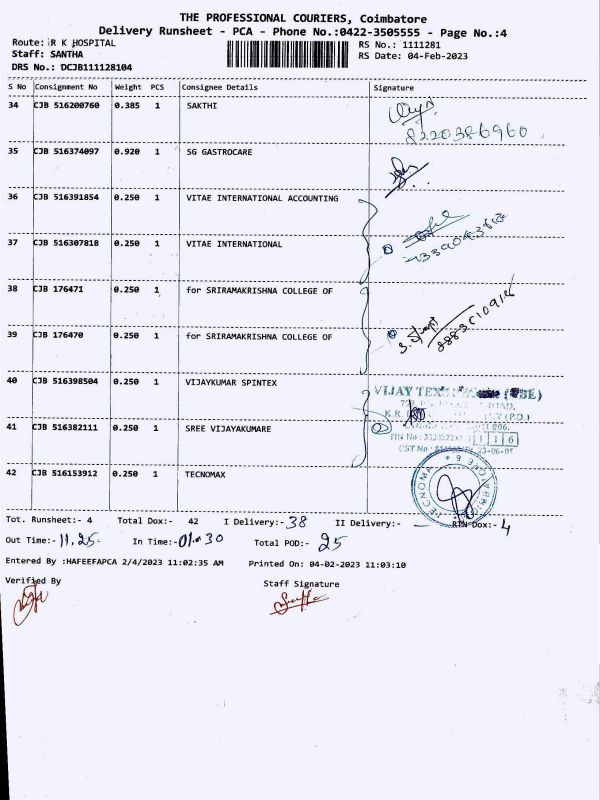 THE PROFESSIONAL COURIERS, Coimbatore
Delivery Runsheet - PCA - Phone No.:0422-3505555 - Page No.:4
Route: R K HOSPITAL
RS No.: 1111281
Staff: SANTHA
RS Date: 04-Feb-2023
DRS No.: DCJB111128104
S No Consignment No Weight PCS Consignee Details Signature
34 CJB 516200760 0.385 1 SAKTHI
8220386960
35 CJB 516374097 0.920 1 SG GASTROCARE
36 CJB 516391854 0.250 1 VITAE INTERNATIONAL ACCOUNTING
37 CJB 516307818 0.250 1 VITAE INTERNATIONAL
38 CJB 176471 0.250 1 for SRIRAMAKRISHNA COLLEGE OF
39 CJB 176470 0.250 1 for SRIRAMAKRISHNA COLLEGE OF
40 CJB 516398504 0.250 1 VIJAYKUMAR SPINTEX
VIJAY
K.R.
41 CJB 516382111 0.250 1 SREE VIJAYAKUMARE
42 CJB 516153912 0.250 1 TECNOMAX
Tot. Runsheet:- 4 Total Dox:- 42 I Delivery:- 38 II Delivery:- — RTN Dox:- 4
Out Time:- 11.25 In Time:- 01.30 Total POD:- 25
Entered By :HAFEEFAPCA 2/4/2023 11:02:35 AM Printed On: 04-02-2023 11:03:10
Verified By Staff Signature